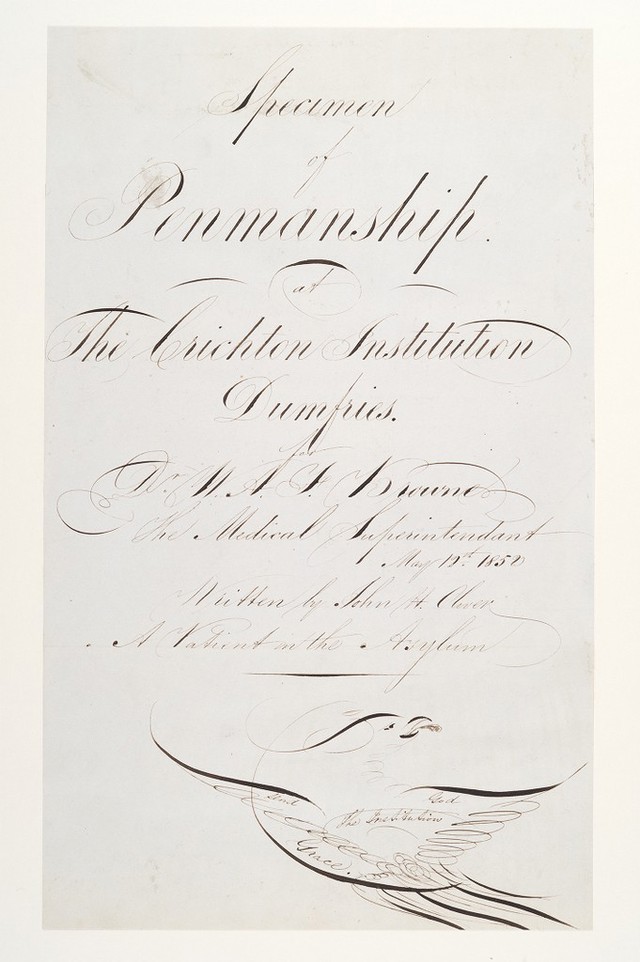 Specimen
of
Penmanship.
at
The Crichton Institution
Dumfries.
for
Dr. W. A. F. Browne
The Medical Superintendant
May 12th 1852
Written by John H. Clover
A Patient in the Asylum
God
The Institution
Grace.